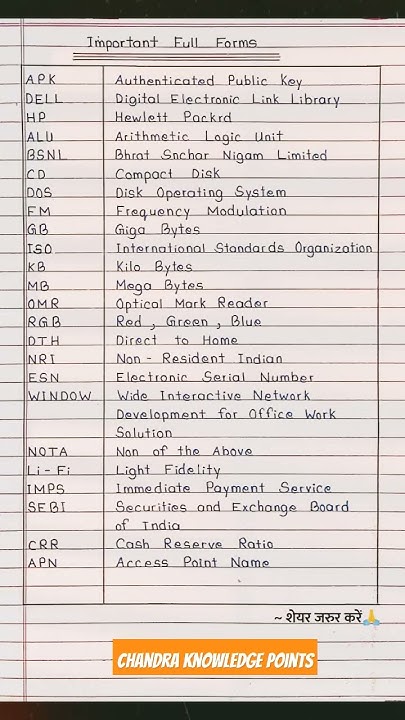 Important Full Forms
APK Authenticated Public Key
DELL Digital Electronic Link Library
HP Hewlett Packrd
ALU Arithmetic Logic Unit
BSNL Bhrat Snchar Nigam Limited
CD Compact Disk
DOS Disk Operating System
FM Frequency Modulation
GB Giga Bytes
ISO International Standards Organization
KB Kilo Bytes
MB Mega Bytes
OMR Optical Mark Reader
RGB Red , Green , Blue
DTH Direct to Home
NRI Non - Resident Indian
ESN Electronic Serial Number
WINDOW Wide Interactive Network
Development for Office Work
Solution
NOTA Non of the Above
Li - Fi Light Fidelity
IMPS Immediate Payment Service
SEBI Securities and Exchange Board
of India
CRR Cash Reserve Ratio
APN Access Point Name
~ शेयर जरुर करें🙏
CHANDRA KNOWLEDGE POINTS